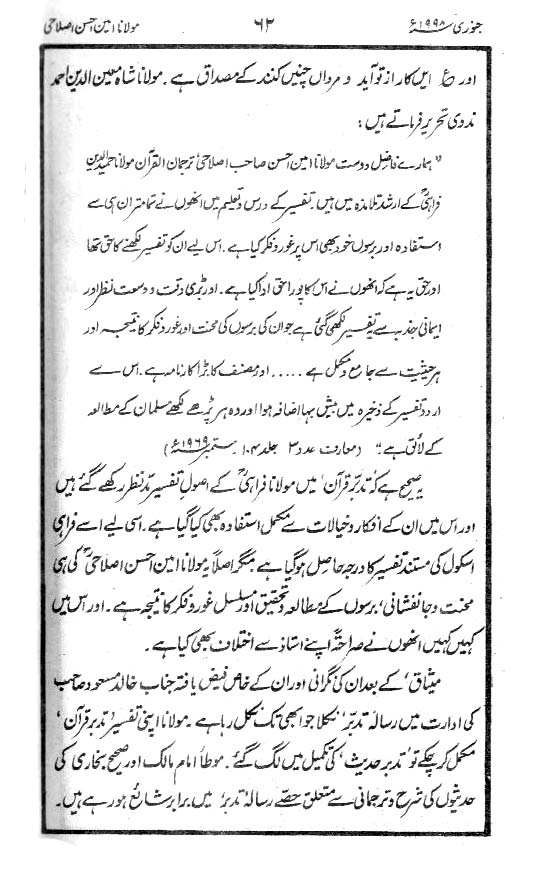 جنوری ۱۹۹۸ء ۶۲ مولانا امین احسن اصلاحی
اور ع ایں کار از تو آید و مرداں چنیں کنند کے مصداق ہے ۔ مولانا شاہ معین الدین احمد
ندوی تحریر فرماتے ہیں :
" ہمارے فاضل دوست مولانا امین احسن صاحب اصلاحی ترجمان القرآن مولانا حمید الدین
فراہیؒ کے ارشد تلامذہ میں ہیں ۔ تفسیر کے درس و تعلیم میں انھوں نے تمامتر ان ہی سے
استفادہ اور برسوں خود بھی اس پر غور و فکر کیا ہے ۔ اس لیے ان کو تفسیر لکھنے کا حق تھا
اور حق یہ ہے کہ انھوں نے اس کا پورا حق ادا کیا ہے ۔ اور بڑی دقت و وسعت نظر اور
ایمانی جذبہ سے یہ تفسیر لکھی گئی ہے جو ان کی برسوں کی محنت اور غور و فکر کا نتیجہ اور
ہر حیثیت سے جامع و مکمل ہے ..... اور مصنف کا بڑا کارنامہ ہے ۔ اس سے
اردو تفسیر کے ذخیرہ میں بیش بہا اضافہ ہوا اور وہ ہر پڑھے لکھے مسلمان کے مطالعہ
کے لائق ہے " (معارف عدد ۳ جلد ۱۰۴ ستمبر ۱۹۶۹ء)
یہ صحیح ہے کہ 'تدبر قرآن' میں مولانا فراہیؒ کے اصول تفسیر مدّنظر رکھے گئے ہیں
اور اس میں ان کے افکار و خیالات سے مکمل استفادہ بھی کیا گیا ہے ۔ اسی لیے اسے فراہی
اسکول کی مستند تفسیر کا درجہ حاصل ہو گیا ہے مگر اصلاً یہ مولانا امین احسن اصلاحیؒ کی ہی
محنت و جانفشانی ' برسوں کے مطالعہ و تحقیق اور مسلسل غور و فکر کا نتیجہ ہے ۔ اور اس میں
کہیں کہیں انھوں نے صراحۃً اپنے استاذ سے اختلاف بھی کیا ہے ۔
میثاق ' کے بعد ان کی نگرانی اور ان کے خاص فیض یافتہ جناب خالد مسعود صاحب
کی ادارت میں رسالہ 'تدبر' نکلا جو ابھی تک نکل رہا ہے ۔ مولانا اپنی تفسیر 'تدبر قرآن'
مکمل کر چکے تو 'تدبر حدیث' کی تکمیل میں لگ گئے ۔ موطأ امام مالک اور صحیح بخاری کی
حدیثوں کی شرح و ترجمانی سے متعلق حصے رسالہ 'تدبر' میں برابر شائع ہو رہے ہیں ۔